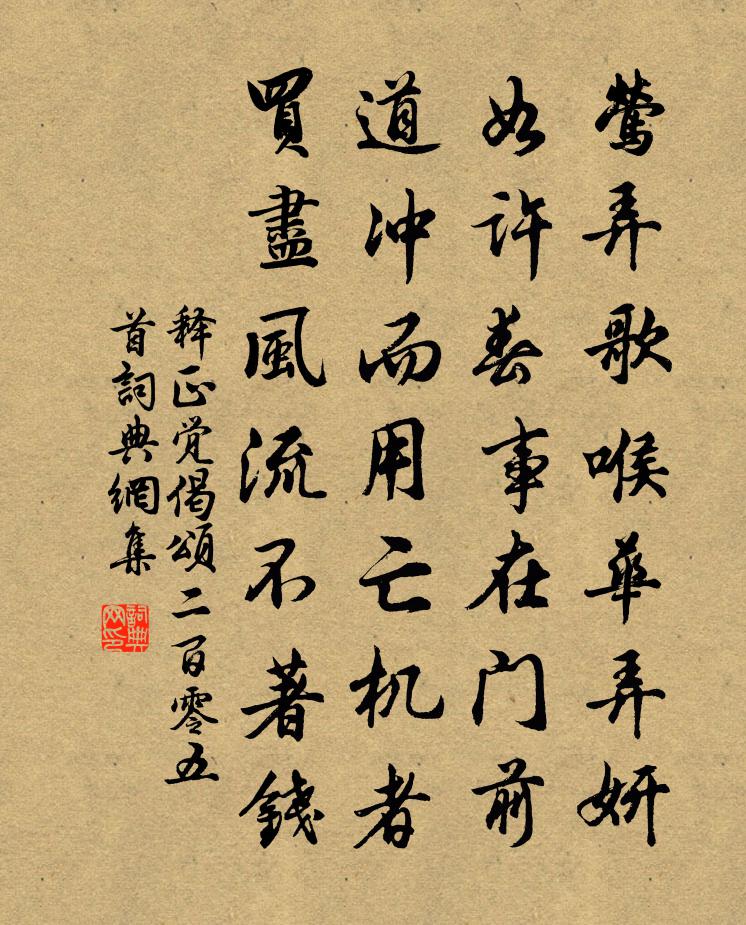 鶯弄歌喉華弄妍
如許春事在門前
道冲而用亡机者
買盡風流不著錢
释正觉偈頌二百零五
首詞典網集
詞典
网印